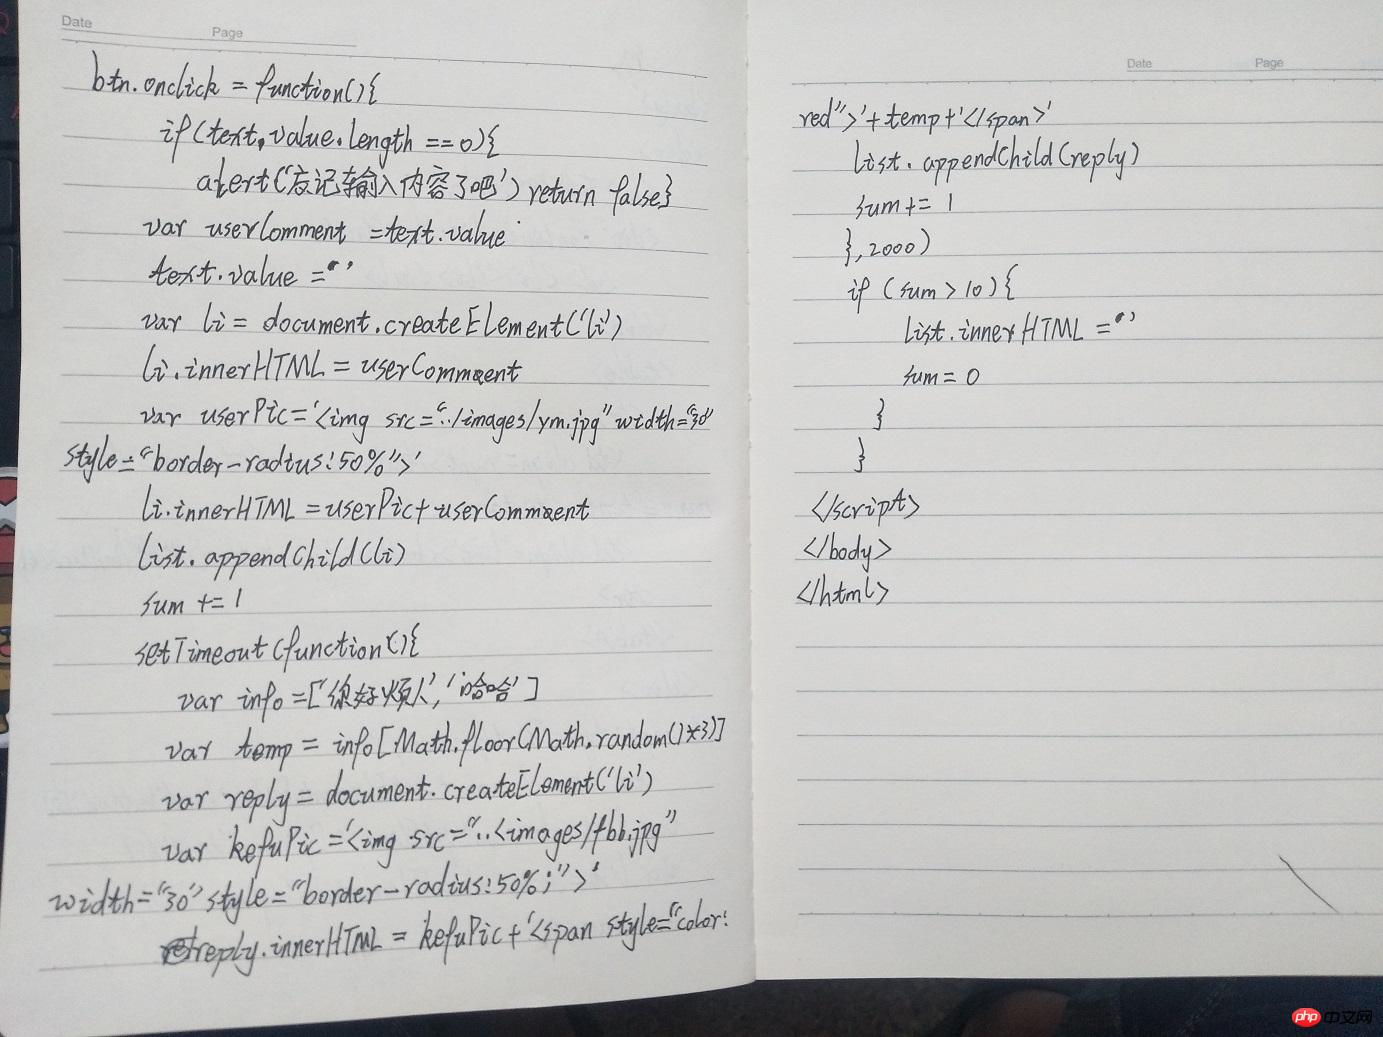 Date
Page
btn.onclick = function(){
if(text.value.length == 0){
alert('忘记输入内容了吧') return false}
var userComment = text.value
text.value = ''
var li = document.createElement('li')
li.innerHTML = userComment
var userPic = '<img src="../images/ym.jpg" width="30"
style="border-radius:50%">'
li.innerHTML = userPic + userComment
list.appendChild(li)
sum += 1
setTimeout(function(){
var info = ['你好烦人', '哈哈']
var temp = info[Math.floor(Math.random()*3)]
var reply = document.createElement('li')
var kefuPic = '<img src="..<images/fbb.jpg"
width="30" style="border-radius:50%;">'
reply.innerHTML = kefuPic + '<span style="color:
Date
Page
red">'+temp+'</span>'
list.appendChild(reply)
sum += 1
},2000)
if (sum > 10){
list.innerHTML = ''
sum = 0
}
}
</script>
</body>
</html>
php 中文网